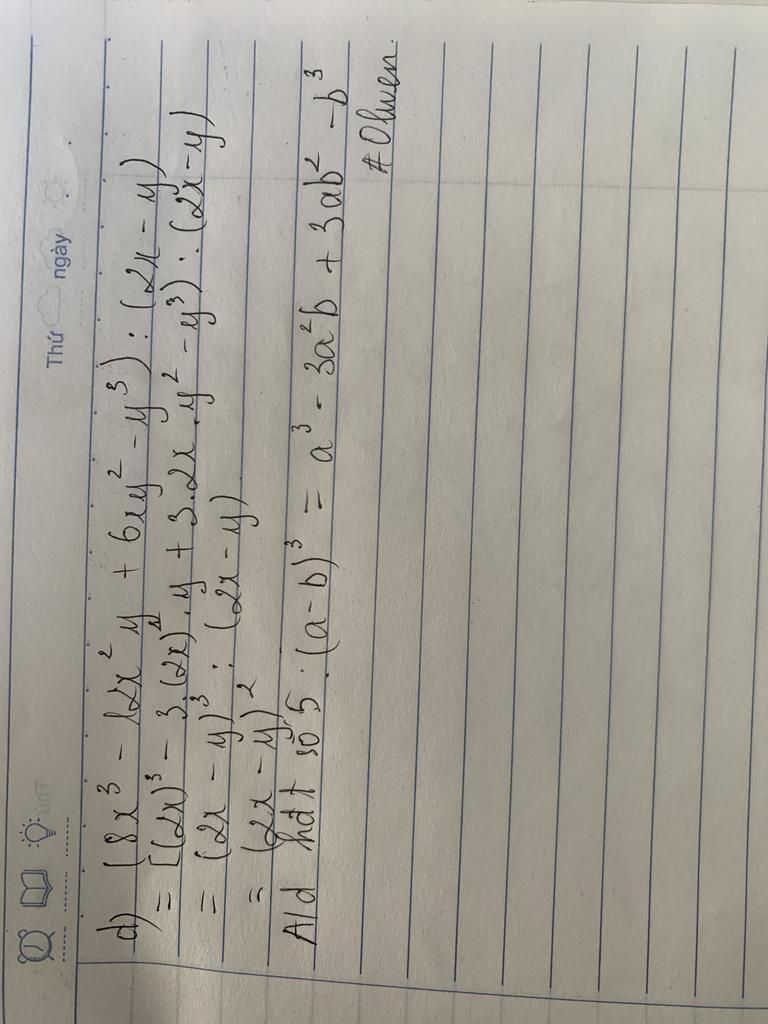 Thứ ngày
d) (8x³ - 12x²y + 6xy² - y³) : (2x - y)
= [(2x)³ - 3.(2x)².y + 3.2x.y² - y³) : (2x - y)
= (2x - y)³ : (2x - y)
= (2x - y)²
A/d hđt số 5 : (a - b)³ = a³ - 3a²b + 3ab² - b³